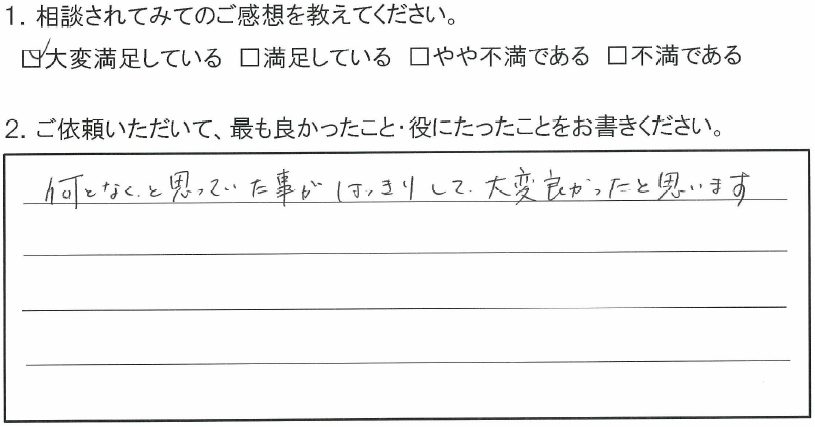 1. 相談されてみてのご感想を教えてください。
☑大変満足している □満足している □やや不満である □不満である
2. ご依頼いただいて、最も良かったこと・役にたったことをお書きください。
何となく、と思っていた事がはっきりして、大変良かったと思います